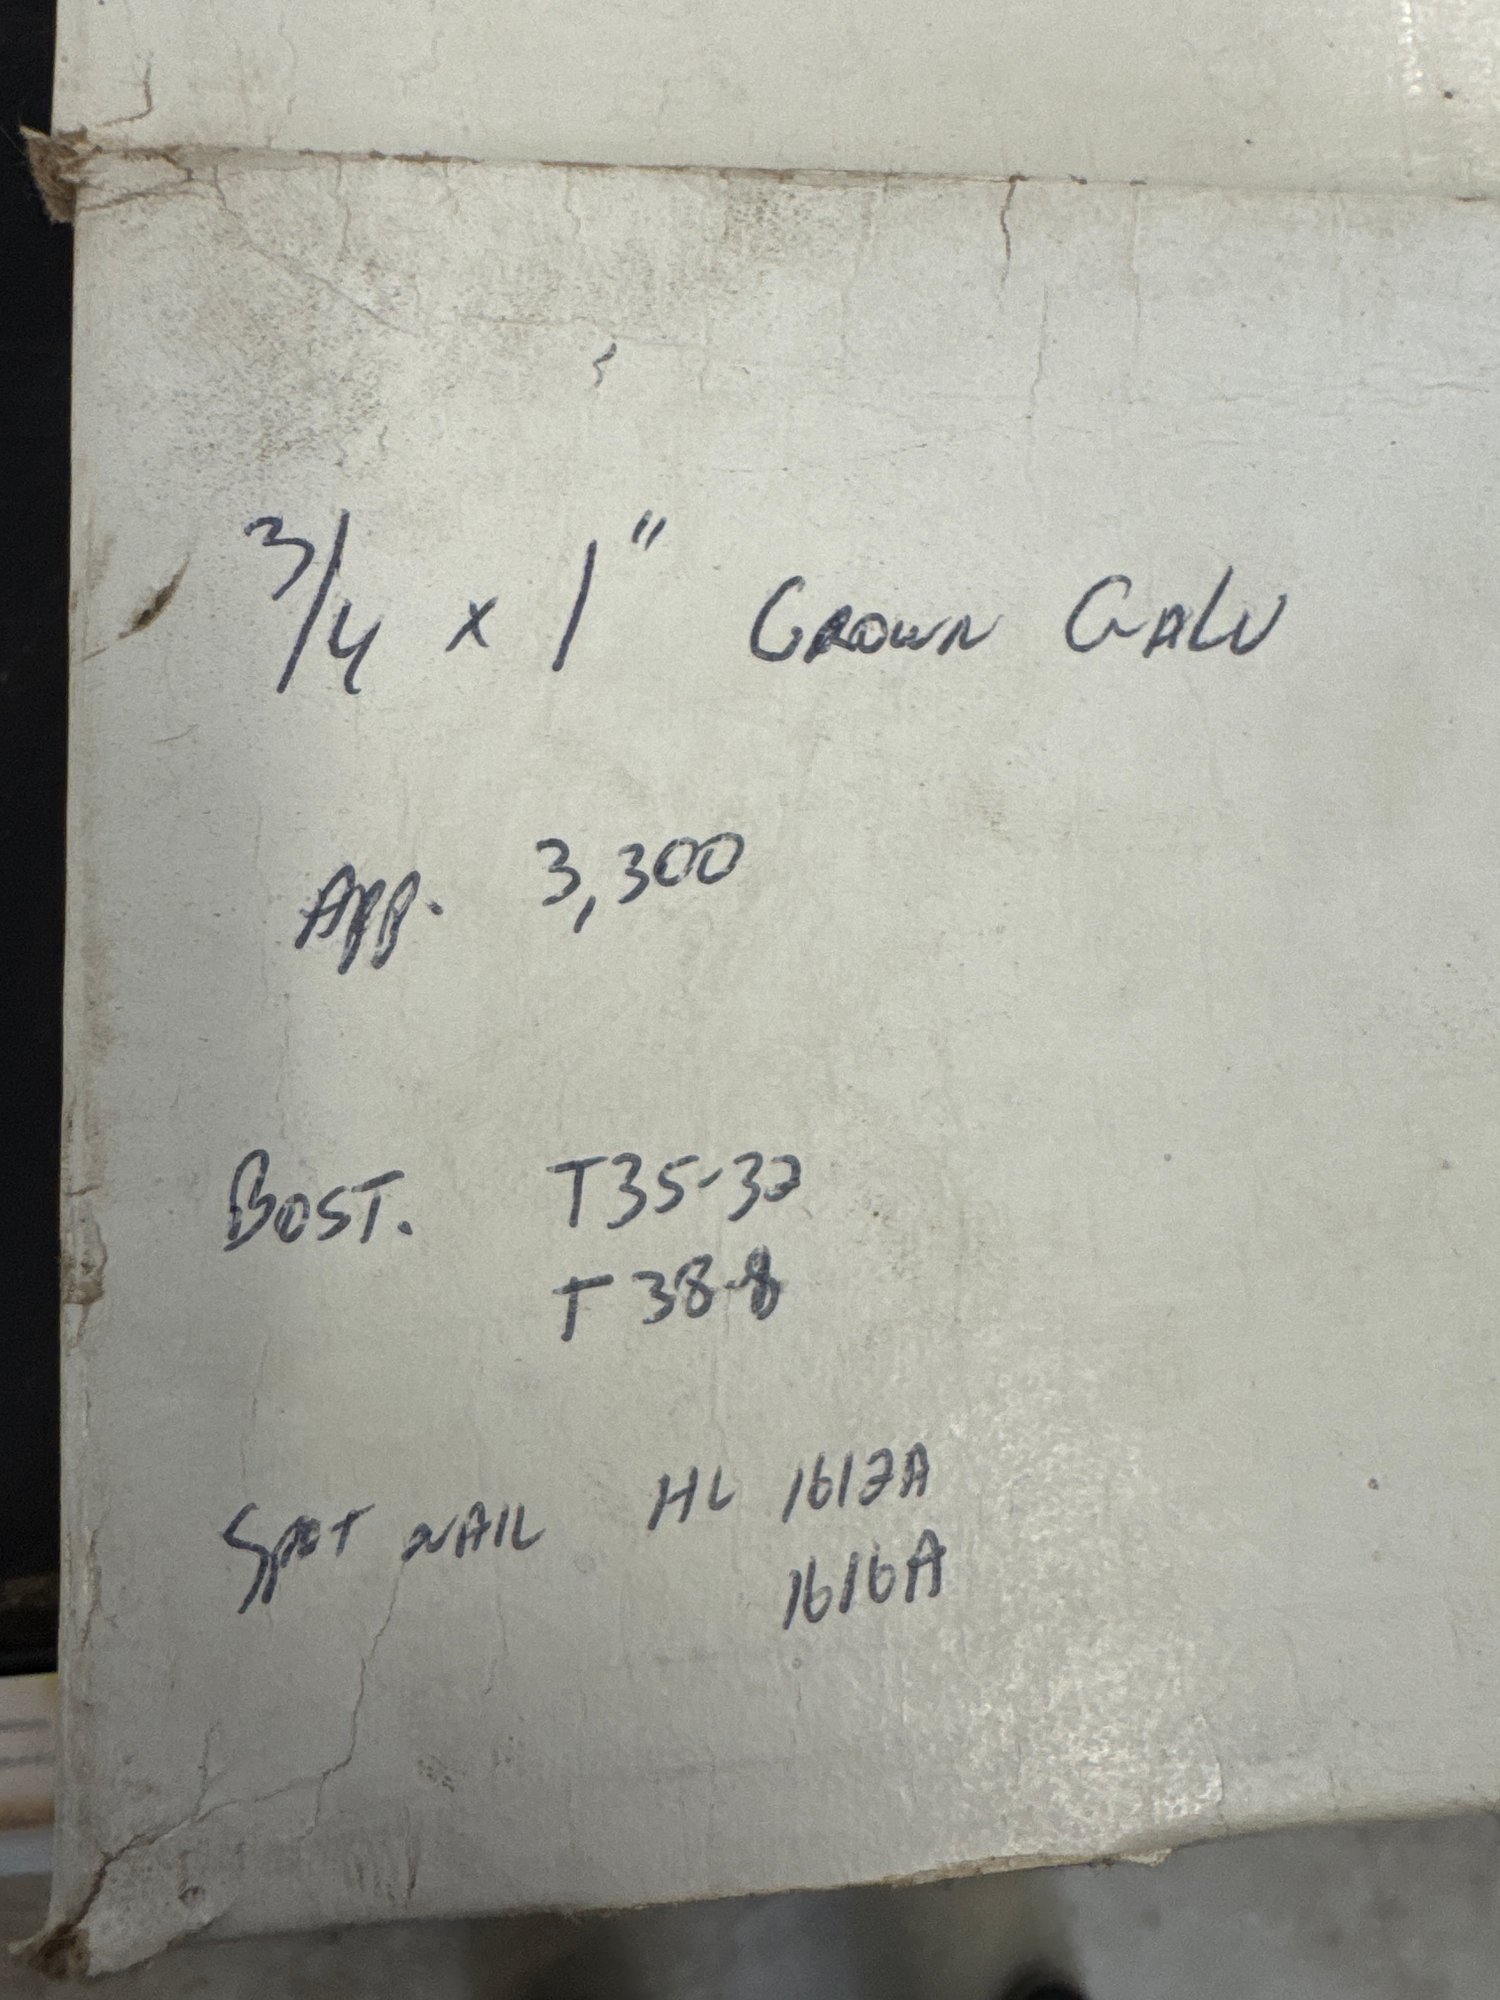 3/4 x 1" CROWN GALV
App. 3,300
BOST. T35-32
T38-8
SPOT NAIL HL 1612A
1616A